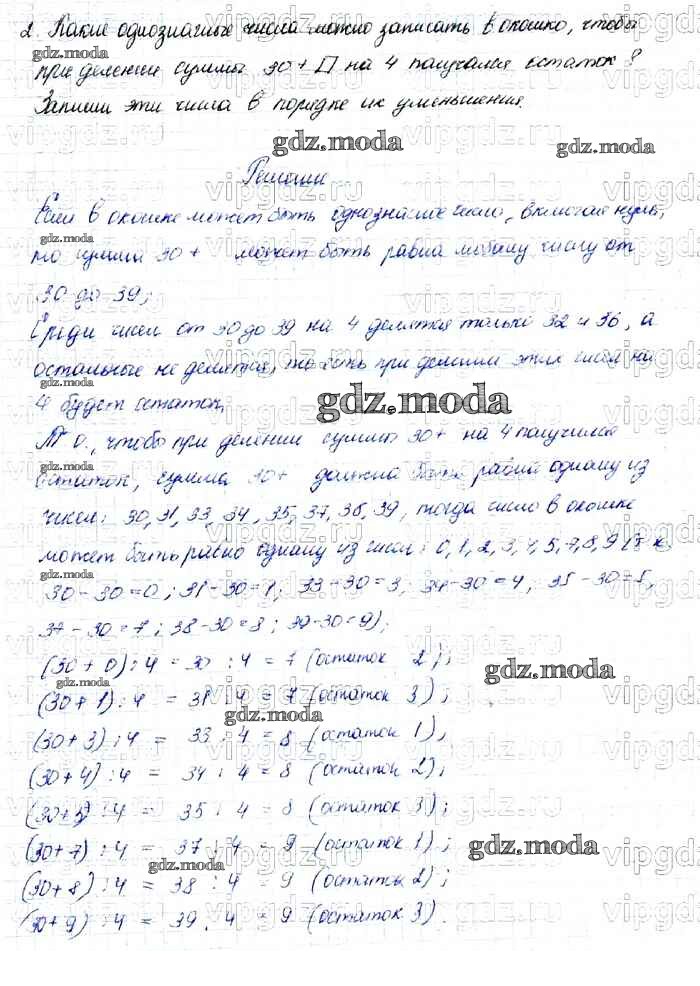 2. Какие однозначные числа можно записать в окошко, чтобы
при делении суммы 30 + □ на 4 получался остаток?
Запиши эти числа в порядке их уменьшения.
gdz.moda
gdz.moda
Решение
Если в окошке может быть однозначное число, включая нуль,
gdz.moda
то сумма 30 + может быть равна любому числу от
30 до 39;
Среди чисел от 30 до 39 на 4 делятся только 32 и 36, а
остальные не делятся, то есть при делении этих чисел на
gdz.moda
4 будет остаток,
gdz.moda
Т. о., чтобы при делении суммы 30 + на 4 получился
gdz.moda
остаток, сумма 30 + должна быть равна одному из
чисел: 30, 31, 33, 34, 35, 37, 38, 39, тогда число в окошке
может быть равно одному из чисел: 0, 1, 2, 3, 4, 5, 7, 8, 9 (т к
gdz.moda
30 - 30 = 0; 31 - 30 = 1; 33 - 30 = 3, 34 - 30 = 4, 35 - 30 = 5,
37 - 30 = 7; 38 - 30 = 8; 39 - 30 = 9);
(30 + 0) : 4 = 30 : 4 = 7 (остаток 2);
gdz.moda
(30 + 1) : 4 = 31 : 4 = 7 (остаток 3);
gdz.moda
(30 + 3) : 4 = 33 : 4 = 8 (остаток 1),
(30 + 4) : 4 = 34 : 4 = 8 (остаток 2);
(30 + 5) : 4 = 35 : 4 = 8 (остаток 3);
(30 + 7) : 4 = 37 : 4 = 9 (остаток 1);
gdz.moda
gdz.moda
(30 + 8) : 4 = 38 : 4 = 9 (остаток 2);
(30 + 9) : 4 = 39 : 4 = 9 (остаток 3).
gdz.moda
vipgdz.ru